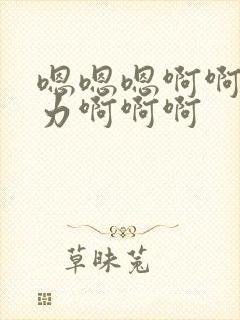 嗯嗯嗯啊啊
力啊啊啊
草昧菟